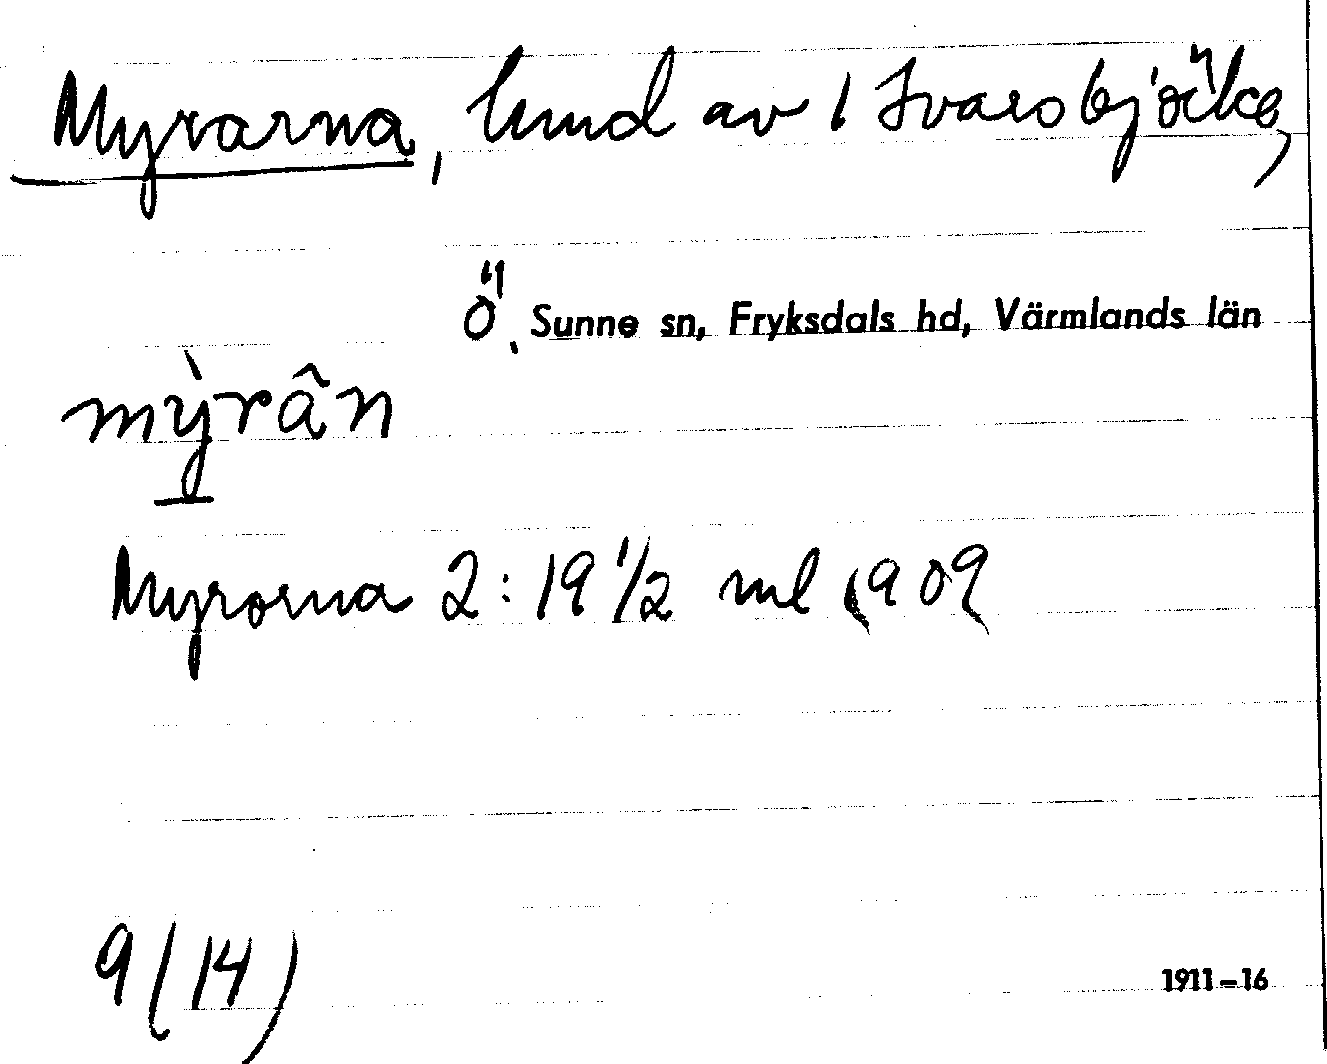 Myrarna, lund av 1 Ivarsbjörke,
Ö. Sunne sn, Fryksdals hd, Värmlands län
mỳrân
Myrorna 2:19 1/2 ml 1909
9 (14)
1911-16